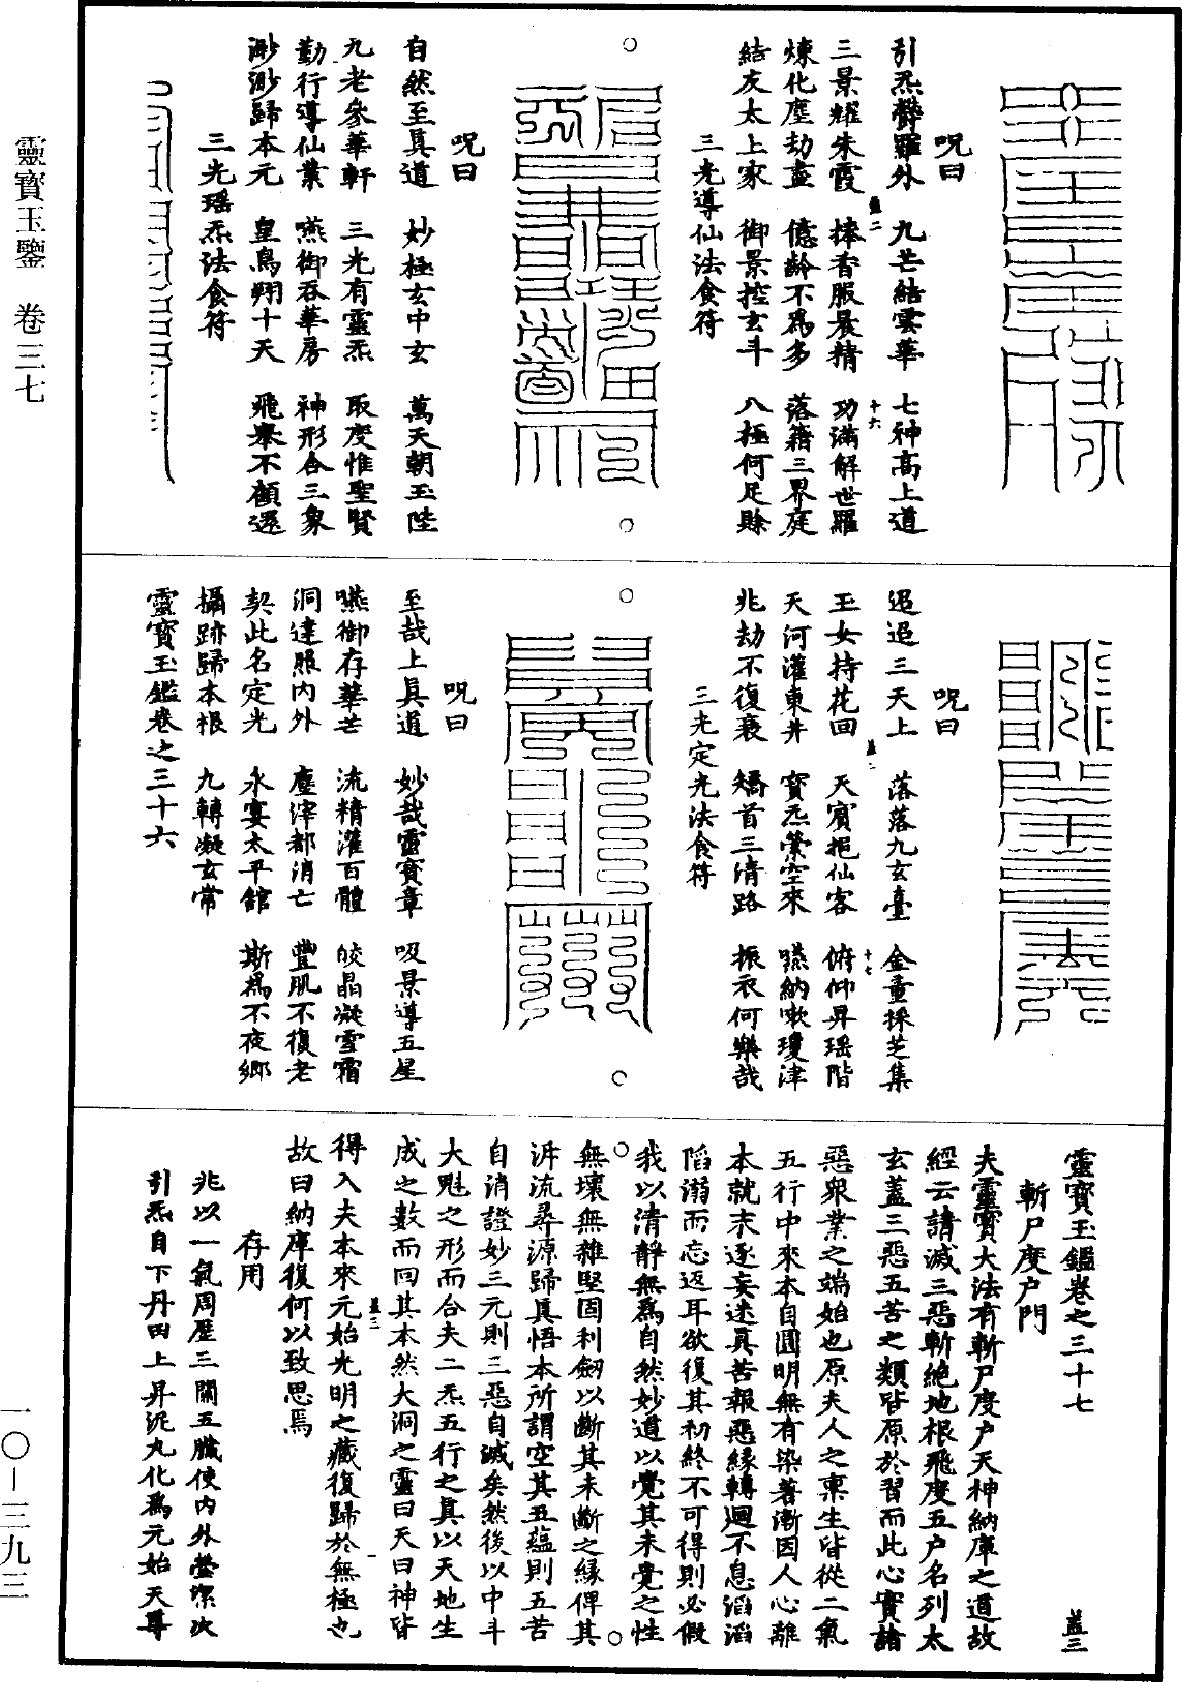 靈寶玉鑒 卷三七
一〇－三九三
呪曰
引炁欝羅外 九芒結雲華 七神高上道
三景耀朱霞 捧香服晨精 功滿解世羅
蓋二 十六
煉化塵劫盡 億齡不爲多 落籍三界庭
結友太上家 御景控玄斗 八極何足賒
三光導仙法食符
呪曰
自然至真道 妙極玄中玄 萬天朝玉陛
九老參華軒 三光有靈炁 取度惟聖賢
勤行導仙業 嚥御吞華房 神形合三象
渺渺歸本元 皇鳥翔十天 飛舉不顧還
三光瑶炁法食符
呪曰
迢迢三天上 落落九玄臺 金童採芝集
玉女持花回 天賓挹仙客 俯仰昇瑶階
蓋二 十七
天河灌東井 寶炁縈空來 嚥納嗽瓊津
兆劫不復衰 矯首三清路 振衣何樂哉
三光定光法食符
呪曰
至哉上真道 妙哉靈寶章 吸景導五星
嚥御存華芒 流精灌百體 皎晶凝雪霜
洞達照内外 塵滓都消亡 豐肌不復老
契此名定光 永宴太平館 斯爲不夜鄉
攝跡歸本根 九轉凝玄常
靈寶玉鑑卷之三十六
靈寶玉鑑卷之三十七 蓋三
斬尸度户門
夫靈寶大法有斬尸度户天神納庫之道故
經云請滅三惡斬絶地根飛度五户名列太
玄蓋三惡五苦之類皆原於習而此心實諸
惡衆業之端始也原夫人之稟生皆從二氣
五行中來本自圓明無有染著漸因人心離
本就末逐妄迷真苦報惡緣轉迴不息滔滔
陷溺而忘返耳欲復其初終不可得則必假
我以清靜無爲自然妙道以覺其未覺之性
無壞無雜堅固利劒以斷其未斷之緣俾其
泝流尋源歸真悟本所謂空其五蘊則五苦
自消證妙三元則三惡自滅矣然後以中斗
大魁之形而合夫二炁五行之真以天地生
成之數而回其本然大洞之靈曰天曰神皆
蓋三 一
得入夫本來元始光明之藏復歸於無極也
故曰納庫復何以致思焉
存用
兆以一氣周歷三關五臟使内外瑩潔次
引炁自下丹田上昇泥丸化爲元始天尊